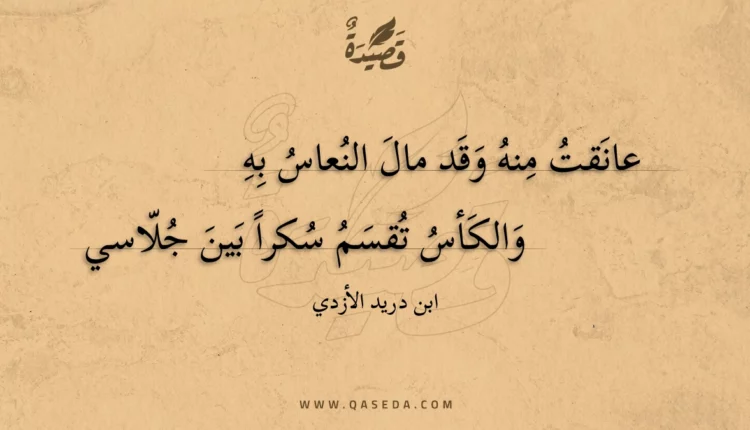 قَصِيدَةٌ
عانَقتُ مِنهُ وَقَد مالَ النُعاسُ بِهِ
وَالكَأسُ تُقسَمُ سُكراً بَينَ جُلّاسي
ابن دريد الأزدي
WWW.QASEDA.COM